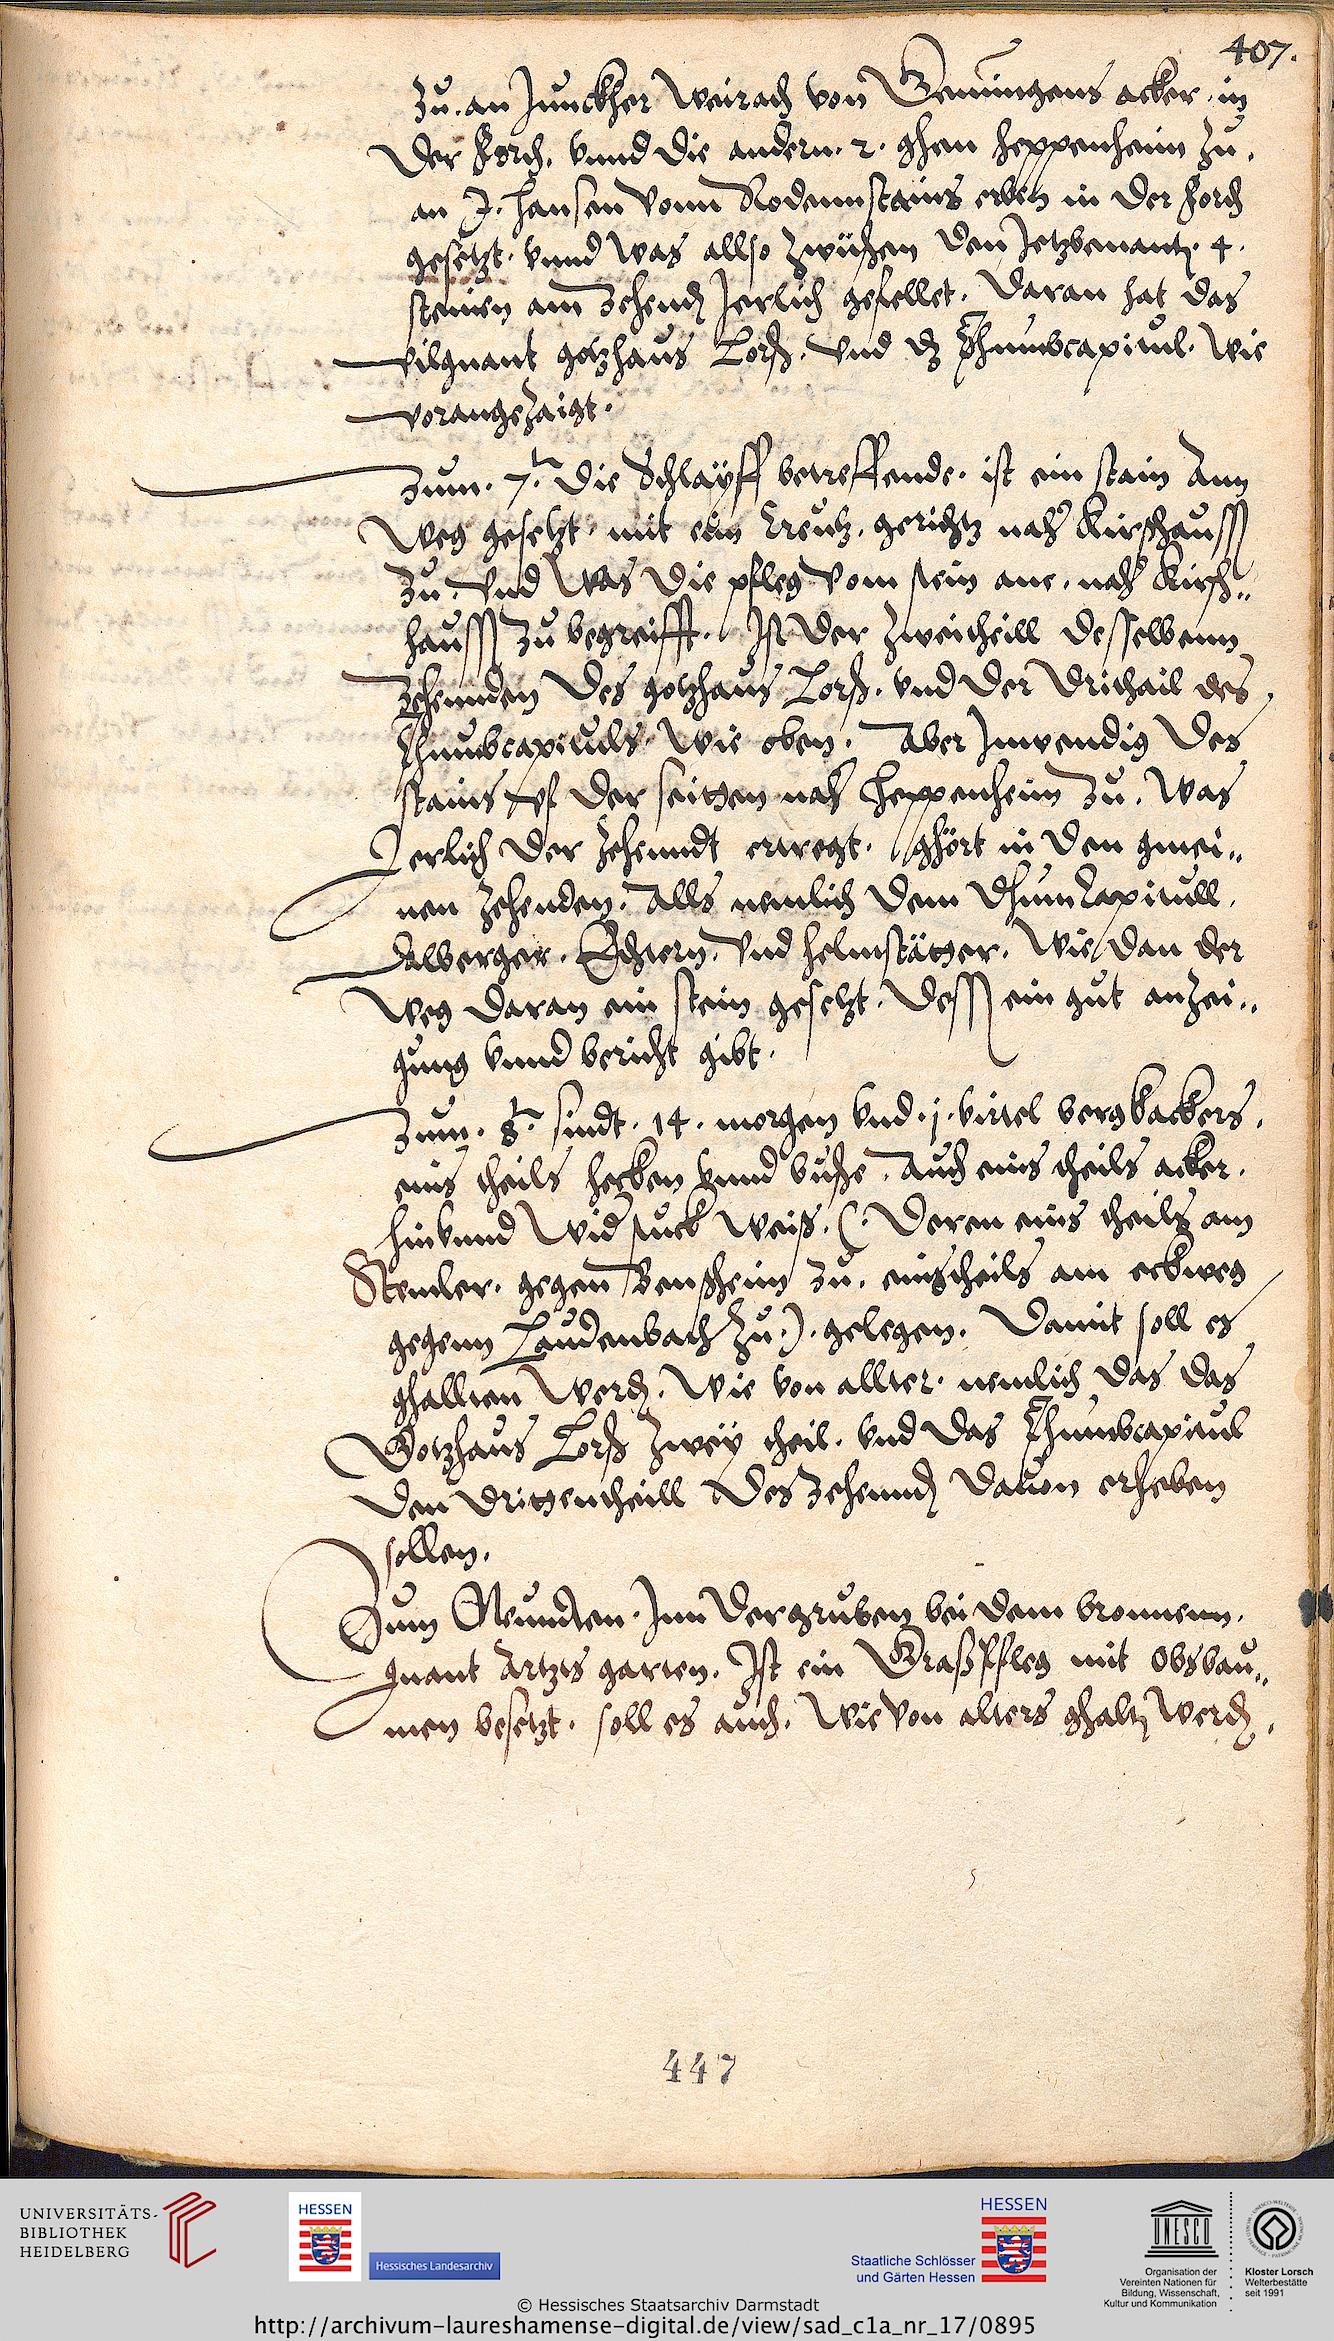 407.
zu. an Junckher Weirach von Gemingens acker. in
der Forch. vnnd die andern. 2. ghen Heppenheim zu.
an J. Hansen vonn Rodennstains erben in der Forch
gesetzt. vnnd was allso zwüschen den Jetzbenanten. 4.
steinen am zehend Jerlich gefellet. daran hat das
vilgnant gotzhaus Lorsch. vnd dz Thumbcapitul. wie
vorangezaigt.
Zum. 7. die Schlaÿff betreffende. ist ein stain Ann
weg gesetzt. mit eim Creutz. gerichtz nach Kirschhauss
zu. vnd was die pfleg vom stein ane. nach Kirsch„
hauss zu begreifft. Ist der zweitheill desselbenn
zehennden des gotzhaus Lorsch. vnd der dritthail des
Thumbcapituls wie oben. Aber Inwendig des
stains vf der seitten nach Heppenheim zu. was
Jerlich der zehenndt ertregt. ghört in den gmei„
nen zehenden. Alls nemlich dem Thumcapitull.
Dalberger. Echtern. vnd Helmstätter. wie dan der
weg daran ein stein gesetzt. dess ein gut anzei„
gung vnnd bericht gibt.
Zum. 8. sindt. 14. morgen vnd. j. virtel bergkackers.
eins theils hecken vnnd busche. Auch eins theils acker.
hin vnnd wider stuck weiss. (. deren eins theils am
Stemler. gegen Bensheim zu. eins theils am eckweg
gegenn Laudenbach zu.). gelegen. damit soll es
ghallten werden. wie von allter. nemlich das das
Gotzhaus Lorsch zweÿ theil. vnd das Thumbcapitul
den drittentheill des zehennden dauon erheben
sollen.
Zum Neundten. Inn der gruben bei dem bronnenn.
gnant Artzts garten. Ist ein Grasspfleg mit Obsbau„
men besetzt. soll es auch. wie von alters ghalten werden.
447
UNIVERSITÄTS-
BIBLIOTHEK
HEIDELBERG
HESSEN
Hessisches Landesarchiv
HESSEN
Staatliche Schlösser
und Gärten Hessen
UNESCO
Organisation der
Vereinten Nationen für
Bildung, Wissenschaft,
Kultur und Kommunikation
Kloster Lorsch
Welterbestätte
seit 1991
© Hessisches Staatsarchiv Darmstadt
http://archivum-laureshamense-digital.de/view/sad_c1a_nr_17/0895